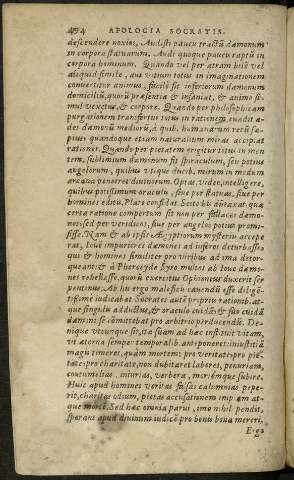 494 APOLOGIA SOCRATIS.
descendere noxios, Audisti paucu tractū dæmonum
in corpora statuarum. Audi quoque paucu raptū in
corpora hominum. Quando vel per atram bilē vel
aliquid simile, aut vitium totus in imaginationem
convertitur animus, facilè fit inferiorum dæmonum
domiciliū, quorū præsentia & insaniat, & animo si-
mul vexetur, & corpore. Quando per philosophiam
purgationem transfertur totus in rationem, evadit a-
des dæmonū medioru, à quib. humanarum rerū sæ-
pius quandoque etiam naturalium miras accipiat
rationes. Quando per pietatem erigitur totus in men-
tem, sublimium dæmonum fit spiraculum, seu potius
angelorum, quibus utique ducib. mirum in modum
arcana penetret divinorum. Optas, video, intelligere,
quibus potissimum oraculis, sive per statuas, sive per
homines editis, Plato confidat. Scito his dūtaxat quæ
certa ratione compertum sit non per fallaces dæmo-
nes, sed per veridicos, sive per angelos potius promi-
sisse. Nam & ab ipsis Ægyptiorum mysteriis accepe-
rat, Iovē impuriores dæmones ad inferos deturbasse,
qui & homines similiter pro viribus ad ima detor-
queant: & à Pherecyde Syro, multos ab Iove dæmo-
nes rebellasse, quorū exercitus Ophioneus duxerit ser-
pentinus. Ab his ergo malefici cavendū esse diligē-
tissimè iudicabat Socrates autē propriis rationib. at-
que singulis adductus, & oraculo cuidā & suo cuidā
dæmoni se cōmittebat pro arbitrio perducendū. De-
nique utcunque sit, ita suam ad hæc instituit vitam,
ut æterna semper temporalib. anteponeret: iniustitiā
magis timeret, quàm mortem: pro veritate, pro pie-
tate, pro charitate, non dubitaret labores, penuriam,
contumelias, iniurias, verbera, mortémque subire.
Huic apud homines veritas falsas calumnias pepe-
rit, charitas odium, pietas accusationem impiam at-
que mortē. Sed hæc omnia parvi, imo nihil pendit,
sperans apud divinum iudicē pro bonis bona mereri.
Ergo